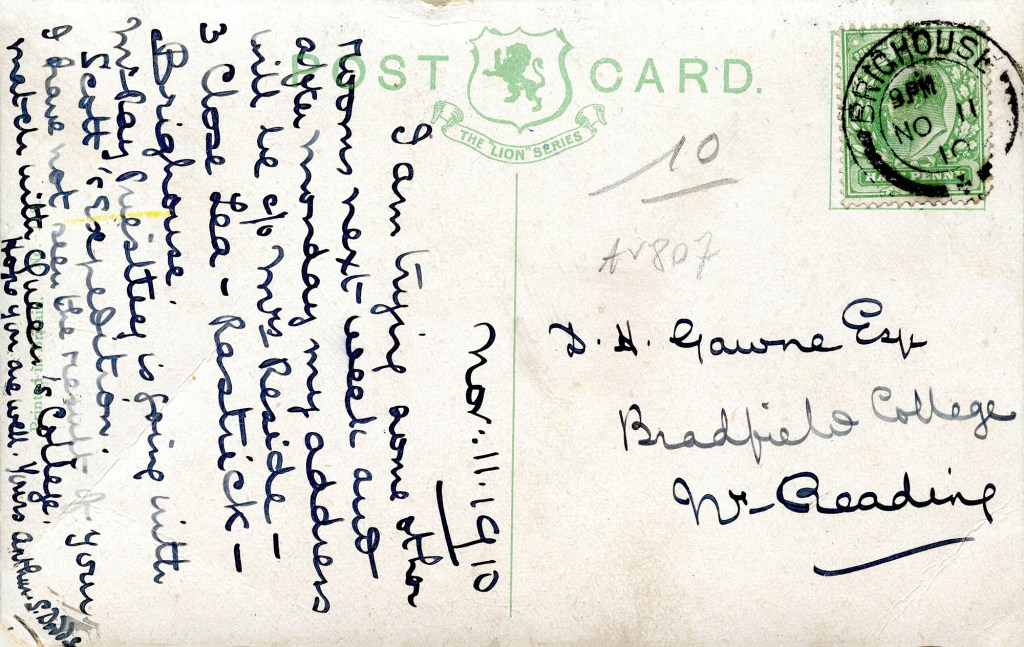 POST CARD.
THE "LION" SERIES
BRIGHOUSE
9.PM
NO 11
10
HALF PENNY
10
AV807
D. H. Gawne Esq
Bradfield College
Nr- Reading
Nov. 11. 1910
I am trying some other
rooms next week and
after monday my address
will be c/o Mrs Reside -
3 Close Lea - Rastrick -
Brighouse.
Mr Ray Priestley is going with
Scott's Expedition.
I have not seen the result of your
match with Queen's College.
Hope you are well. Yours Arthur S.